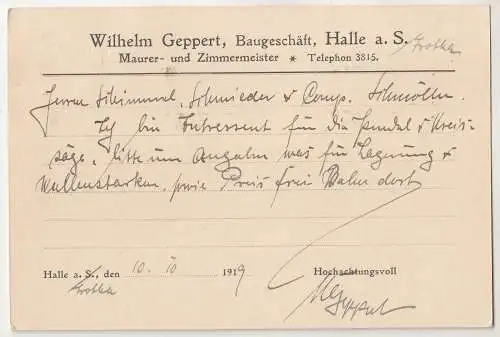 Wilhelm Geppert, Baugeschäft, Halle a. S. Trotha
Maurer- und Zimmermeister * Telephon 3815.
Herren Schimmel, Schmieder & Comp. Schmölln.
Ich bin Interessent für die Pendel & Kreis-
säge, bitte um Angabe was für Lagerung &
Wellenstärken, sowie Preis frei Bahn dort
Halle a. S., den 10. 10 1919 Hochachtungsvoll
Trotha
W Geppert